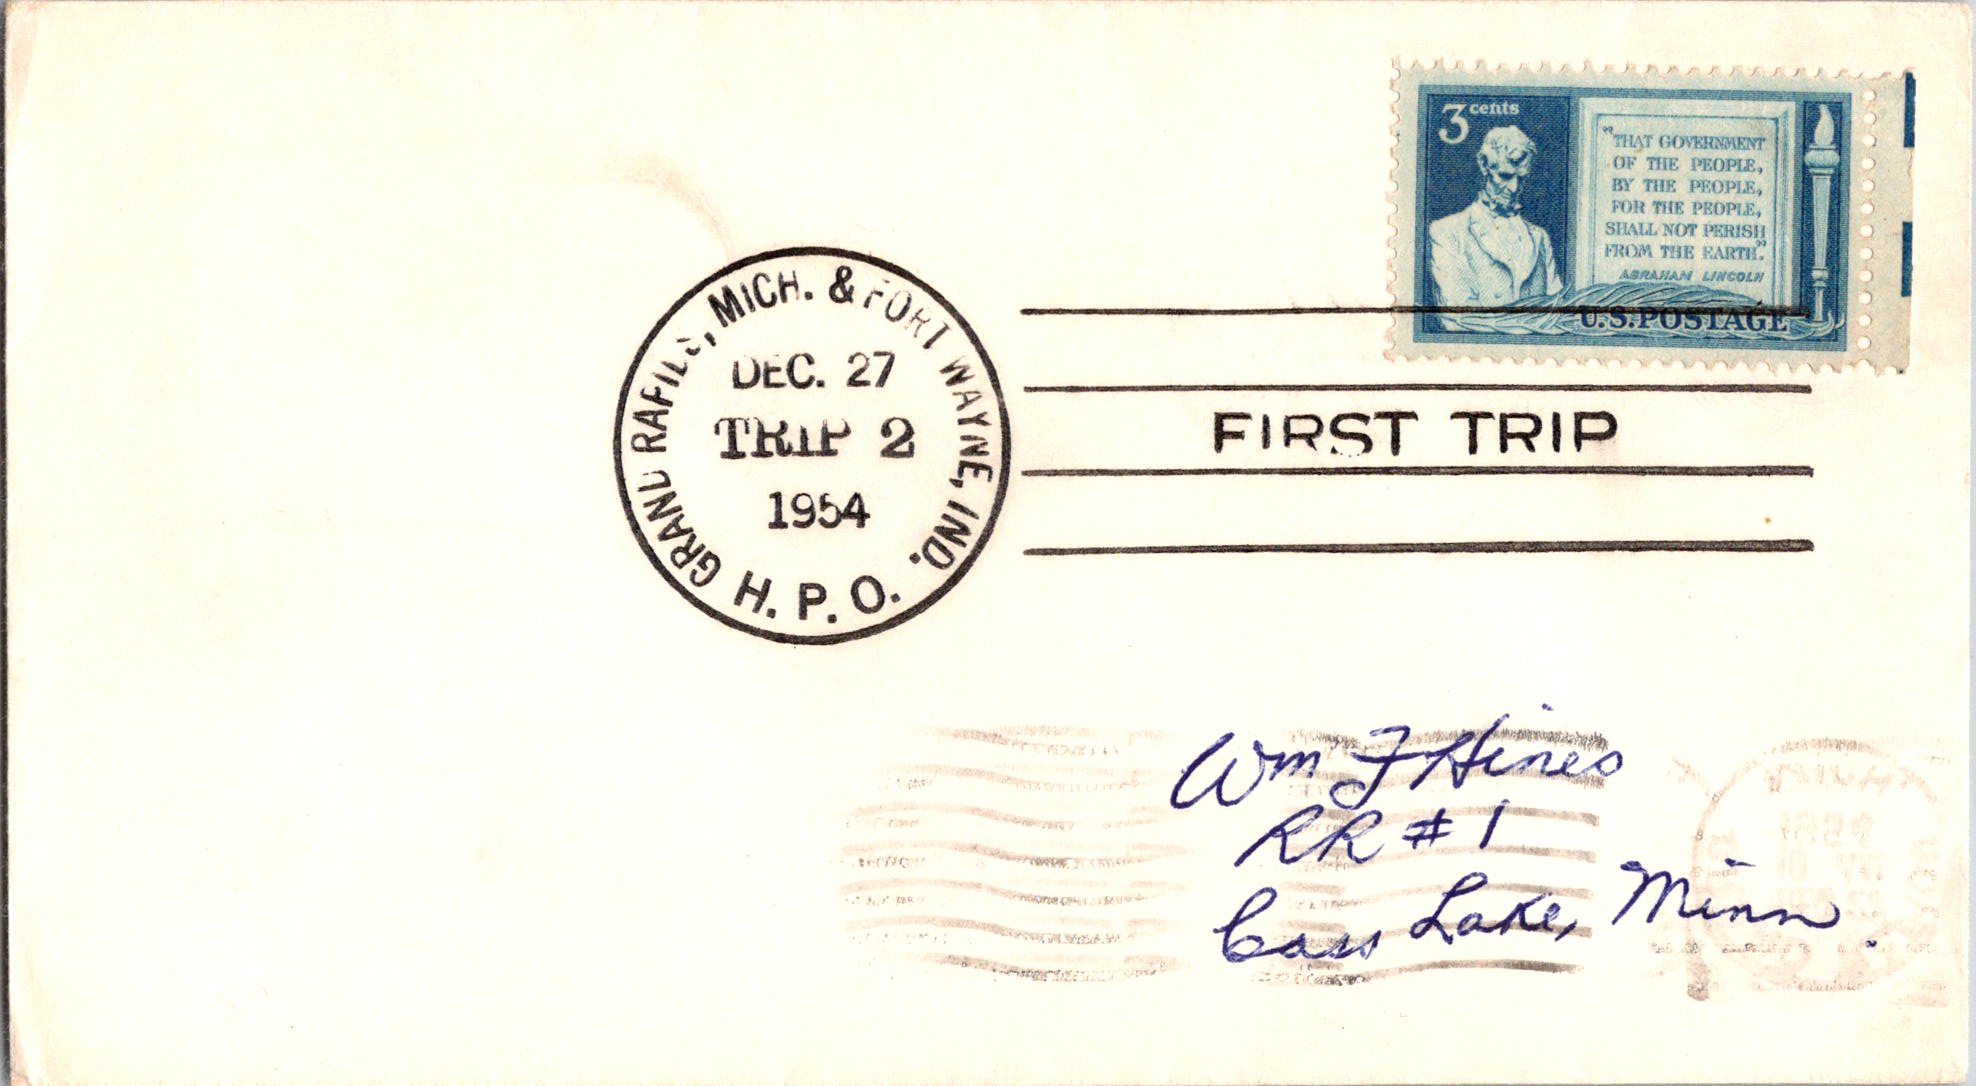 3 cents
"THAT GOVERNMENT
OF THE PEOPLE,
BY THE PEOPLE,
FOR THE PEOPLE,
SHALL NOT PERISH
FROM THE EARTH."
ABRAHAM LINCOLN
U.S. POSTAGE
GRAND RAPIDS, MICH. & FORT WAYNE, IND.
DEC. 27
TRIP 2
1954
H. P. O.
FIRST TRIP
Wm F Hines
RR # 1
Cass Lake, Minn.